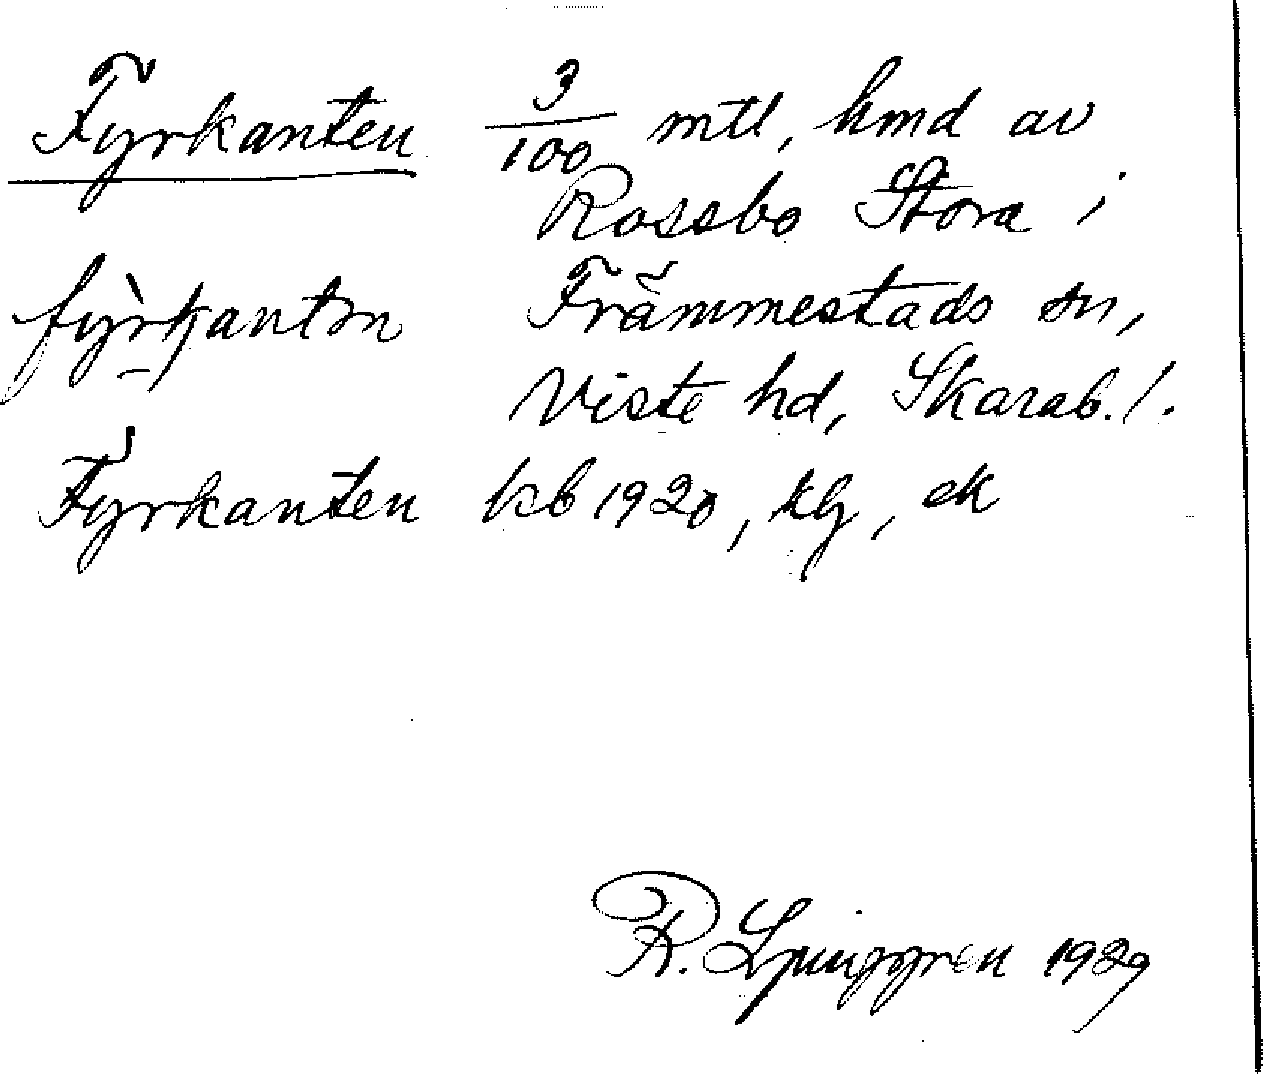 Fyrkanten 3/100 mtl, hmd av
Rossbo Stora i
fỳrkantɷn Främmestads sn,
Viste hd, Skarab. l.
Fyrkanten kb 1920, klg, ek
R. Ljunggren 1929